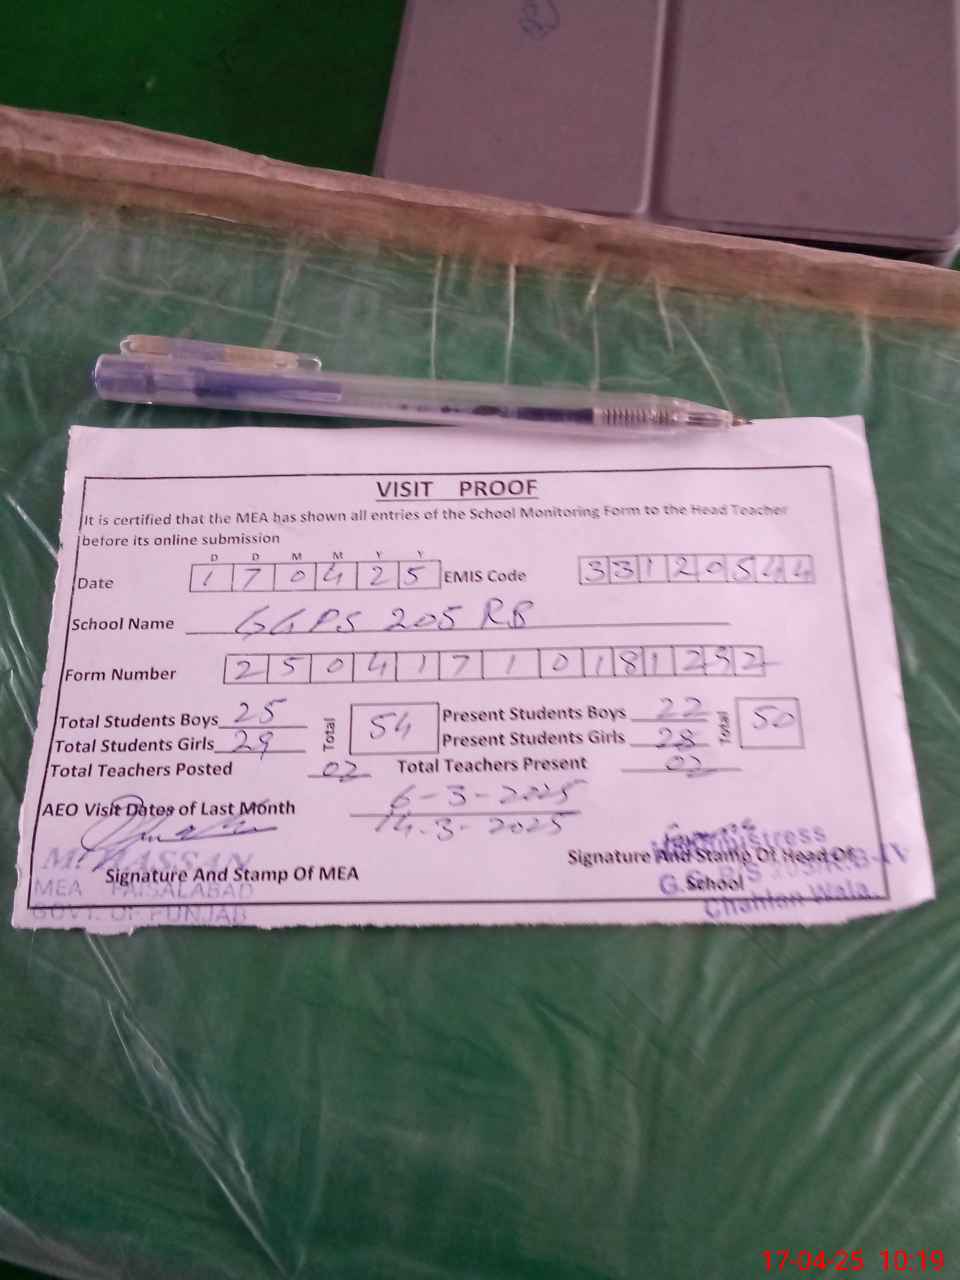 VISIT PROOF
It is certified that the MEA has shown all entries of the School Monitoring Form to the Head Teacher
before its online submission
D D M M Y Y
Date 1 7 0 4 2 5 EMIS Code 3 3 1 2 0 5 4 4
School Name GGPS 205 RB
Form Number 2 5 0 4 1 7 1 0 1 8 1 2 5 2
Total Students Boys 25 Total 54 Present Students Boys 22 Total 50
Total Students Girls 29 Present Students Girls 28
Total Teachers Posted 02 Total Teachers Present 02
AEO Visit Dates of Last Month 6-3-2025
14-3-2025
Signature And Stamp Of MEA
HASSAN
MEA FAISALABAD
GOVT. OF PUNJAB
Signature And Stamp Of Head Of
School
Chahlan Wala.
17-04-25 10:19